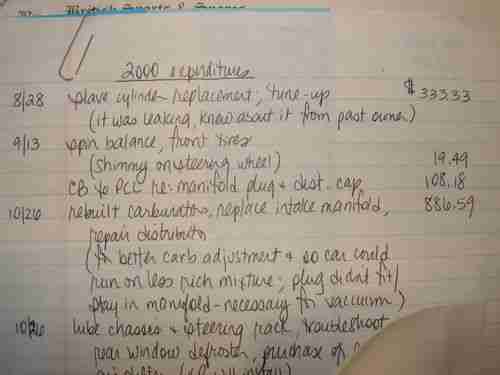 2000 expenditures
8/28 slave cylinder replacement, tune-up $ 333.33
(it was leaking, knew about it from past owner)
9/13 spin balance, front tires
(shimmy on steering wheel) 19.49
CB to PCC re: manifold plug + dist. cap 108.18
10/26 rebuilt carburators, replace intake manifold, 886.59
repair distributor
(for better carb adjustment + so car could
run on less rich mixture; plug didn't fit/
stay in manifold - necessary for vacuum)
10/26 lube chassis + steering rack, troubleshoot
rear window defroster, purchase of